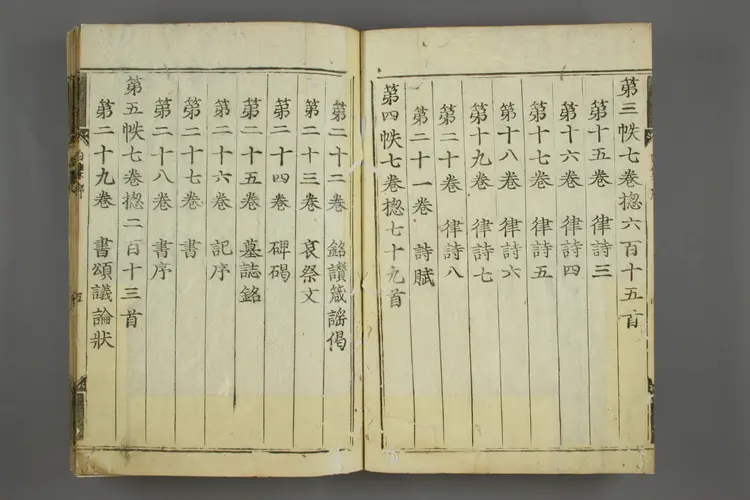 第三帙七卷揔六百十五首
第十五卷 律詩三
第十六卷 律詩四
第十七卷 律詩五
第十八卷 律詩六
第十九卷 律詩七
第二十卷 律詩八
第二十一卷 詩賦
第四帙七卷揔七十九首
第二十二卷 銘讃箴謡偈
第二十三卷 哀祭文
第二十四卷 碑碣
第二十五卷 墓誌銘
第二十六卷 記序
第二十七卷 書
第二十八卷 書序
第五帙七卷揔二百十三首
第二十九卷 書頌議論狀